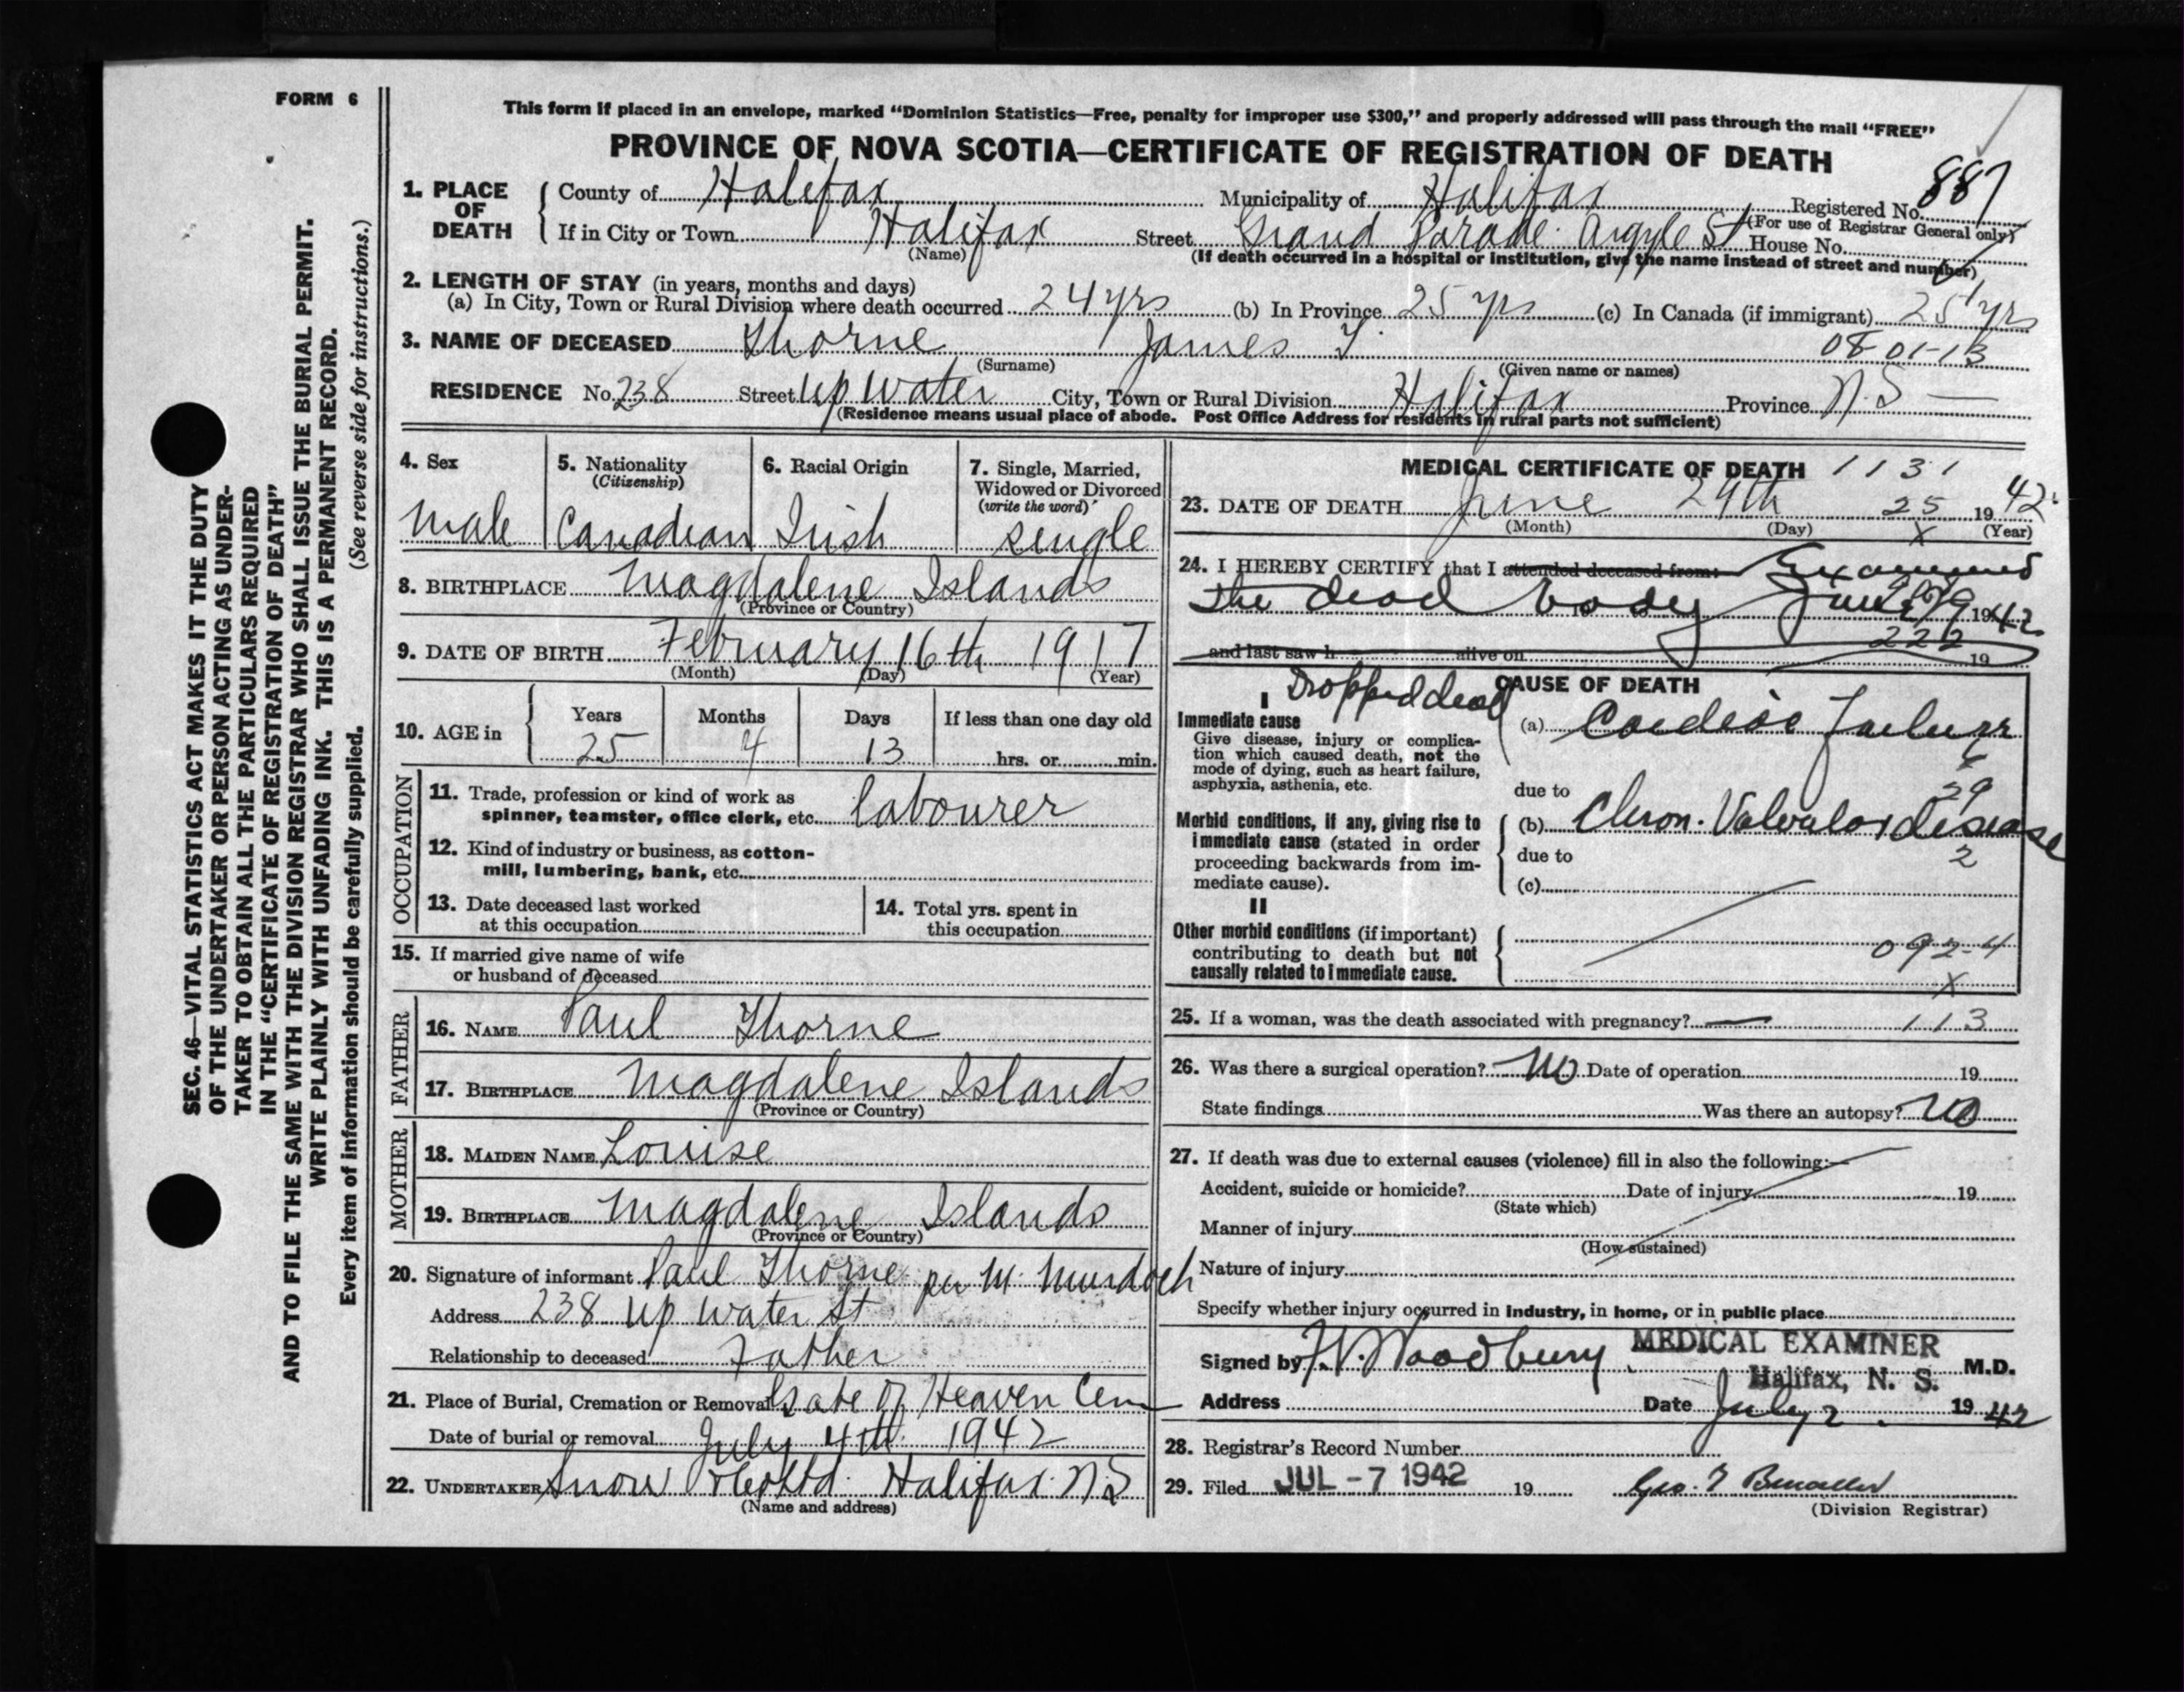 FORM 6
This form if placed in an envelope, marked "Dominion Statistics—Free, penalty for improper use $300," and properly addressed will pass through the mail "FREE"
PROVINCE OF NOVA SCOTIA—CERTIFICATE OF REGISTRATION OF DEATH
1. PLACE OF DEATH
County of Halifax Municipality of Halifax Registered No. 887
(For use of Registrar General only)
If in City or Town Halifax Street Grand Parade. Argyle St House No.
(Name) (If death occurred in a hospital or institution, give the name instead of street and number)
2. LENGTH OF STAY (in years, months and days)
(a) In City, Town or Rural Division where death occurred 24 yrs (b) In Province 25 yrs (c) In Canada (if immigrant) 25 yrs
3. NAME OF DECEASED Thorne James 08-01-13
(Surname) (Given name or names)
RESIDENCE No. 238 Street Up Water City, Town or Rural Division Halifax Province N.S —
(Residence means usual place of abode. Post Office Address for residents in rural parts not sufficient)
4. Sex
male
5. Nationality
(Citizenship)
Canadian
6. Racial Origin
Irish
7. Single, Married,
Widowed or Divorced
(write the word)
single
8. BIRTHPLACE Magdalene Islands
(Province or Country)
9. DATE OF BIRTH February 16th 1917
(Month) (Day) (Year)
10. AGE in
Years Months Days If less than one day old
25 4 13 hrs. or min.
OCCUPATION
11. Trade, profession or kind of work as
spinner, teamster, office clerk, etc. labourer
12. Kind of industry or business, as cotton-
mill, lumbering, bank, etc.
13. Date deceased last worked
at this occupation
14. Total yrs. spent in
this occupation
15. If married give name of wife
or husband of deceased
FATHER
16. NAME Paul Thorne
17. BIRTHPLACE Magdalene Islands
(Province or Country)
MOTHER
18. MAIDEN NAME Louise
19. BIRTHPLACE Magdalene Islands
(Province or Country)
20. Signature of informant Paul Thorne per M. Murdoch
Address 238 Up Water St
Relationship to deceased Father
21. Place of Burial, Cremation or Removal Gate of Heaven Cem
Date of burial or removal July 4th 1942
22. UNDERTAKER Snow & Co Ltd. Halifax N.S
(Name and address)
MEDICAL CERTIFICATE OF DEATH 1131
23. DATE OF DEATH June 29th 25 1942
(Month) (Day) x (Year)
24. I HEREBY CERTIFY that I attended deceased from: Examined
the dead body June 29 1942
222
and last saw h alive on 19
CAUSE OF DEATH
I
Dropped dead
Immediate cause
Give disease, injury or complica-
tion which caused death, not the
mode of dying, such as heart failure,
asphyxia, asthenia, etc.
(a) Cardiac Failure
due to 29
Morbid conditions, if any, giving rise to
immediate cause (stated in order
proceeding backwards from im-
mediate cause).
(b) Chron. Valvular disease
due to 2
(c)
II
Other morbid conditions (if important)
contributing to death but not
causally related to immediate cause.
092-4
x
25. If a woman, was the death associated with pregnancy? — 113
26. Was there a surgical operation? No Date of operation 19
State findings Was there an autopsy? No
27. If death was due to external causes (violence) fill in also the following:—
Accident, suicide or homicide? Date of injury 19
(State which)
Manner of injury
(How sustained)
Nature of injury
Specify whether injury occurred in industry, in home, or in public place
Signed by Woodbury MEDICAL EXAMINER M.D.
Halifax, N. S.
Address Date July 2. 1942
28. Registrar's Record Number
29. Filed JUL -7 1942 19
(Division Registrar)
SEC. 46—VITAL STATISTICS ACT MAKES IT THE DUTY
OF THE UNDERTAKER OR PERSON ACTING AS UNDER-
TAKER TO OBTAIN ALL THE PARTICULARS REQUIRED
IN THE "CERTIFICATE OF REGISTRATION OF DEATH"
AND TO FILE THE SAME WITH THE DIVISION REGISTRAR WHO SHALL ISSUE THE BURIAL PERMIT.
WRITE PLAINLY WITH UNFADING INK. THIS IS A PERMANENT RECORD.
Every item of information should be carefully supplied. (See reverse side for instructions.)